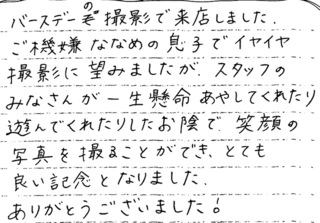 バースデーの撮影で来店しました.
ご機嫌ななめの息子でイヤイヤ
撮影に望みましたが、スタッフの
みなさんが一生懸命あやしてくれたり
遊んでくれたりしたお陰で、笑顔の
写真を撮ることができ、とても
良い記念となりました.
ありがとうございました!